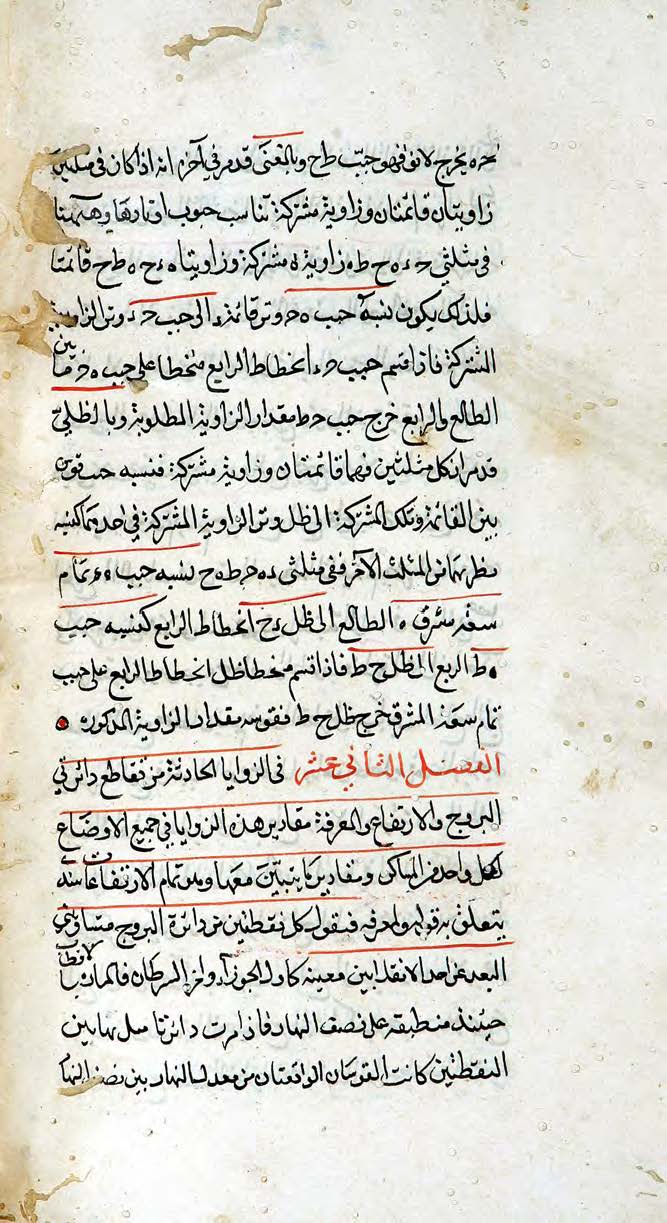 حه يخرج لا نوفهو جيب طح وبالمغنى قدم في آخره انه اذا كان في مثلثين
زاويتان قائمتان وزاوية مشتركة تناسب جيوب اوتارها وههنا
في مثلثي ح ء ه ح ط ه زاوية ه مشتركة وزاويتا ه ء ح ه ط ح قائمتا
فلذلك يكون نسبة جيب ه ح وتر قائمة ء الى جيب ح ء وتر الزاوية
المشتركة فاذا قسم جيب ح ء انخطاط الرابع منحطا على جيب ه ح ما بين
الطالع والرابع خرج جيب ح ط مقدار الزاوية المطلوبة وبالظلي
قدم ان كل مثلثين فيهما قائمتان وزاوية مشتركة فنسبة جيب قوس
بين القائمة وتلك المشتركة الى ظل وتر الزاوية المشتركة في احدهما كنسبة
نظيريهما من المثلث الآخر ففي مثلثي ء ه ح ط ه ح نسبة جيب ه ء تمام
سعة مشرق ه الطالع الى ظل ء ح انخطاط الرابع كنسبة جيب
ه ط الربع الى ظل ح ط فاذا قسم منحطا ظل انخطاط الرابع على جيب
تمام سعة المشرق خرج ظل ح ط فقوسه مقدار الزاوية المذكورة
الفصل الثاني عشر في الزوايا الحادثة من تقاطع دائرتي
البروج والارتفاع والمعرفة مقادير هذه الزوايا في جميع الاوضاع
لكل واحد من المساكن ومقادير ما يتبين معها من تمام الارتفاعات
يتعلق به قوله ولمعرفة فنقول كل نقطتين من دائرة البروج متساويتي
البعد عن احد الانقلابين معينه كاول الجوزآء واول السرطان فالمارة بالاقطاب
حينئذ منطبقة على نصف النهار فاذا مرت دائرتا ميل بهاتين
النقطتين كانت القوسان الواقعتان من معدل النهار بين نصف النهار